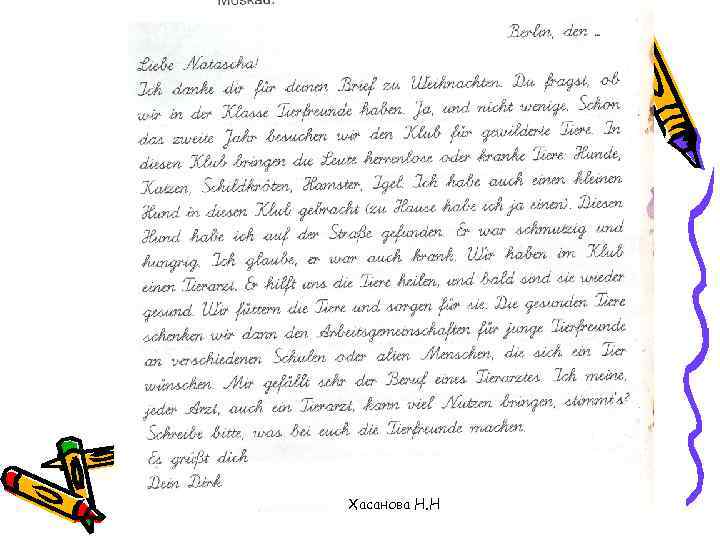 Moskau.
Berlin, den ...
Liebe Natascha!
Ich danke dir für deinen Brief zu Weihnachten. Du fragst, ob
wir in der Klasse Tierfreunde haben. Ja, und nicht wenige. Schon
das zweite Jahr besuchen wir den Klub für gewilderte Tiere. In
diesen Klub bringen die Leute herrenlose oder kranke Tiere: Hunde,
Katzen, Schildkröten, Hamster, Igel. Ich habe auch einen kleinen
Hund in diesen Klub gebracht (zu Hause habe ich ja einen). Diesen
Hund habe ich auf der Straße gefunden. Er war schmutzig und
hungrig. Ich glaube, er war auch krank. Wir haben im Klub
einen Tierarzt. Er hilft uns die Tiere heilen, und bald sind sie wieder
gesund. Wir füttern die Tiere und sorgen für sie. Die gesunden Tiere
schenken wir dann den Arbeitsgemeinschaften für junge Tierfreunde
an verschiedenen Schulen oder alten Menschen, die sich ein Tier
wünschen. Mir gefällt sehr der Beruf eines Tierarztes. Ich meine,
jeder Arzt, auch ein Tierarzt, kann viel Nutzen bringen, stimmt's?
Schreibe bitte, was bei euch die Tierfreunde machen.
Es grüßt dich
Dein Dirk
Хасанова Н.Н